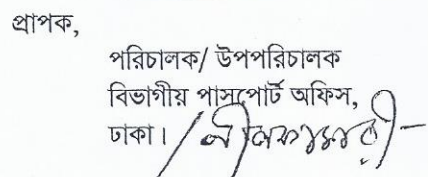 প্রাপক,
পরিচালক/ উপপরিচালক
বিভাগীয় পাসপোর্ট অফিস,
ঢাকা। / নীলফামারী